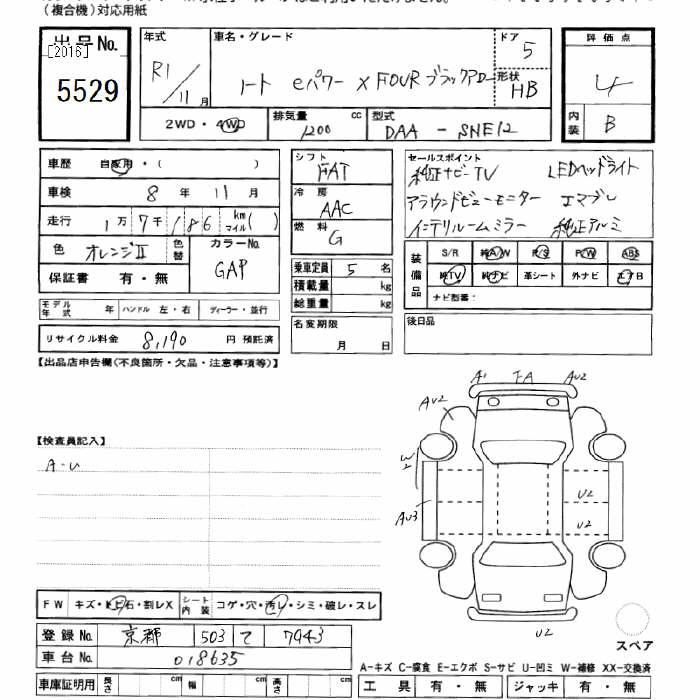 (複合機)対応用紙
出品No.
[2016]
5529
年式 R1/11月
車名・グレード
ノート eパワー X FOUR ブラックアロー
ドア 5
形状 HB
評価点 4
内装 B
2WD・4WD
排気量 1200 cc
型式 DAA - SNE12
車歴 自家用・( )
車検 8年 11月
走行 1万7千186 km マイル( )
色 オレンジⅡ 色替
カラーNo. GAP
保証書 有・無
モデル年式 年 ハンドル 左・右 ディーラー・並行
リサイクル料金 8,190 円 預託済
シフト FAT
冷房 AAC
燃料 G
乗車定員 5 名
積載量 kg
総重量 kg
名変期限 月 日
セールスポイント
純正ナビ-TV LEDヘッドライト
アラウンドビューモニター エマブレ
インテリルームミラー 純正アルミ
装備品
S/R 純A/W P/S P/W ABS
純TV 純ナビ 革シート 外ナビ エアB
ナビ型番:
後日品
【出品店申告欄(不良箇所・欠品・注意事項等)】
【検査員記入】
A-U
A1 FA AU2
AU2
W2
AU3
U2
U2
U2
スペア
FW キズ・トビ石・割レX
シート内装 コゲ・穴・汚レ・シミ・破レ・スレ
登録No. 京都 503 て 7943
車台No. 018635
車庫証明用 長さ cm 幅 cm 高さ cm
A-キズ C-腐食 E-エクボ S-サビ U-凹ミ W-補修 XX-交換済
工具 有・無 ジャッキ 有・無